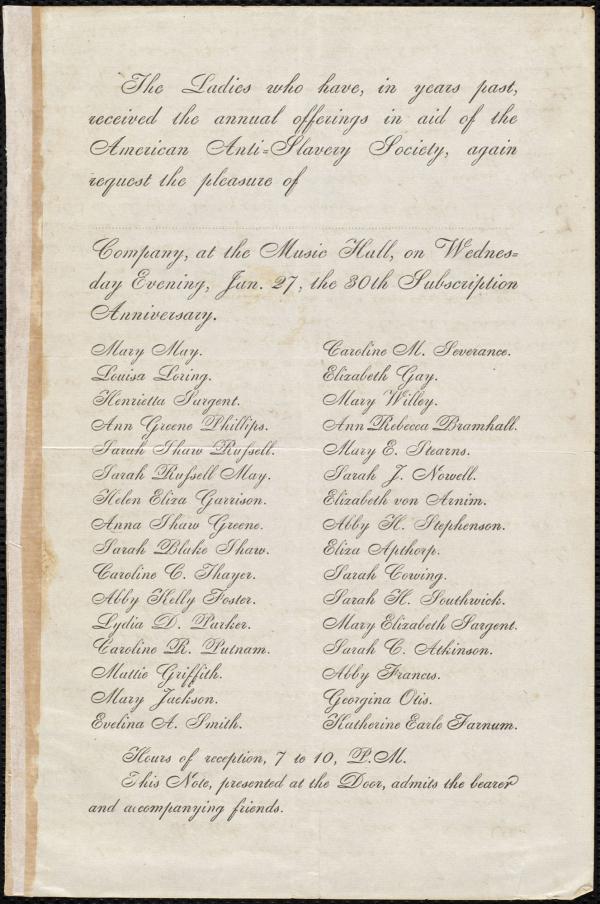 The Ladies who have, in years past,
received the annual offerings in aid of the
American Anti-Slavery Society, again
request the pleasure of
Company, at the Music Hall, on Wednes-
day Evening, Jan. 27, the 30th Subscription
Anniversary.
Mary May.
Louisa Loring.
Henrietta Sargent.
Ann Greene Phillips.
Sarah Shaw Russell.
Sarah Russell May.
Helen Eliza Garrison.
Anna Shaw Greene.
Sarah Blake Shaw.
Caroline C. Thayer.
Abby Kelly Foster.
Lydia D. Parker.
Caroline R. Putnam.
Mattie Griffith.
Mary Jackson.
Evelina A. Smith.
Caroline M. Severance.
Elizabeth Gay.
Mary Willey.
Ann Rebecca Bramhall.
Mary E. Stearns.
Sarah J. Nowell.
Elizabeth von Arnim.
Abby H. Stephenson.
Eliza Apthorp.
Sarah Cowing.
Sarah H. Southwick.
Mary Elizabeth Sargent.
Sarah C. Atkinson.
Abby Francis.
Georgina Otis.
Katherine Earle Farnum.
Hours of reception, 7 to 10, P.M.
This Note, presented at the Door, admits the bearer
and accompanying friends.